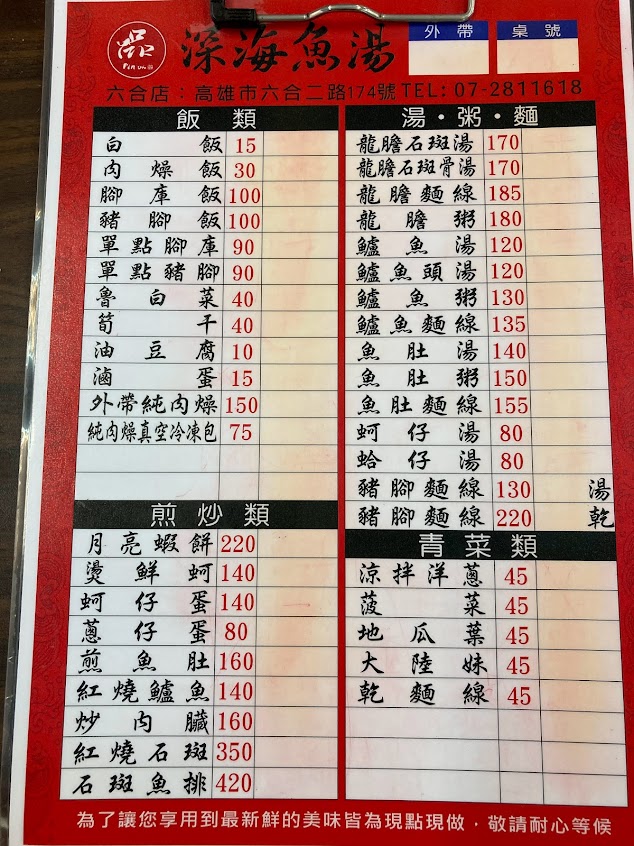 品
Pin un
深海魚湯
外帶
桌號
六合店：高雄市六合二路174號 TEL: 07-2811618
飯類
白飯 15
肉燥飯 30
腳庫飯 100
豬腳飯 100
單點腳庫 90
單點豬腳 90
魯白菜 40
筍干 40
油豆腐 10
滷蛋 15
外帶純肉燥 150
純肉燥真空冷凍包 75
煎炒類
月亮蝦餅 220
燙鮮蚵 140
蚵仔蛋 140
蔥仔蛋 80
煎魚肚 160
紅燒鱸魚 140
炒內臟 160
紅燒石斑 350
石斑魚排 420
湯・粥・麵
龍膽石斑湯 170
龍膽石斑骨湯 170
龍膽麵線 185
龍膽粥 180
鱸魚湯 120
鱸魚頭湯 120
鱸魚粥 130
鱸魚麵線 135
魚肚湯 140
魚肚粥 150
魚肚麵線 155
蚵仔湯 80
蛤仔湯 80
豬腳麵線 130 湯
豬腳麵線 220 乾
青菜類
涼拌洋蔥 45
菠菜 45
地瓜葉 45
大陸妹 45
乾麵線 45
為了讓您享用到最新鮮的美味皆為現點現做，敬請耐心等候